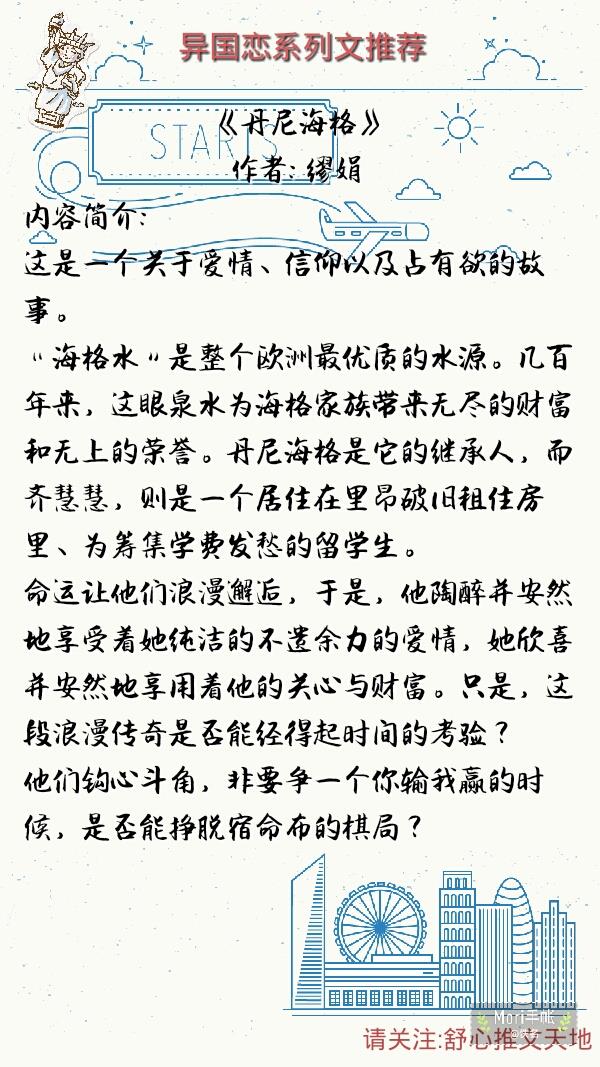 异国恋系列文推荐
START
《丹尼海格》
作者:缪娟
内容简介:
这是一个关于爱情、信仰以及占有欲的故
事。
“海格水”是整个欧洲最优质的水源。几百
年来，这眼泉水为海格家族带来无尽的财富
和无上的荣誉。丹尼海格是它的继承人，而
齐慧慧，则是一个居住在里昂破旧租住房
里、为筹集学费发愁的留学生。
命运让他们浪漫邂逅，于是，他陶醉并安然
地享受着她纯洁的不遗余力的爱情，她欣喜
并安然地享用着他的关心与财富。只是，这
段浪漫传奇是否能经得起时间的考验？
他们钩心斗角，非要争一个你输我赢的时
候，是否能挣脱宿命布的棋局？
Mori手帐
请关注:舒心推文天地